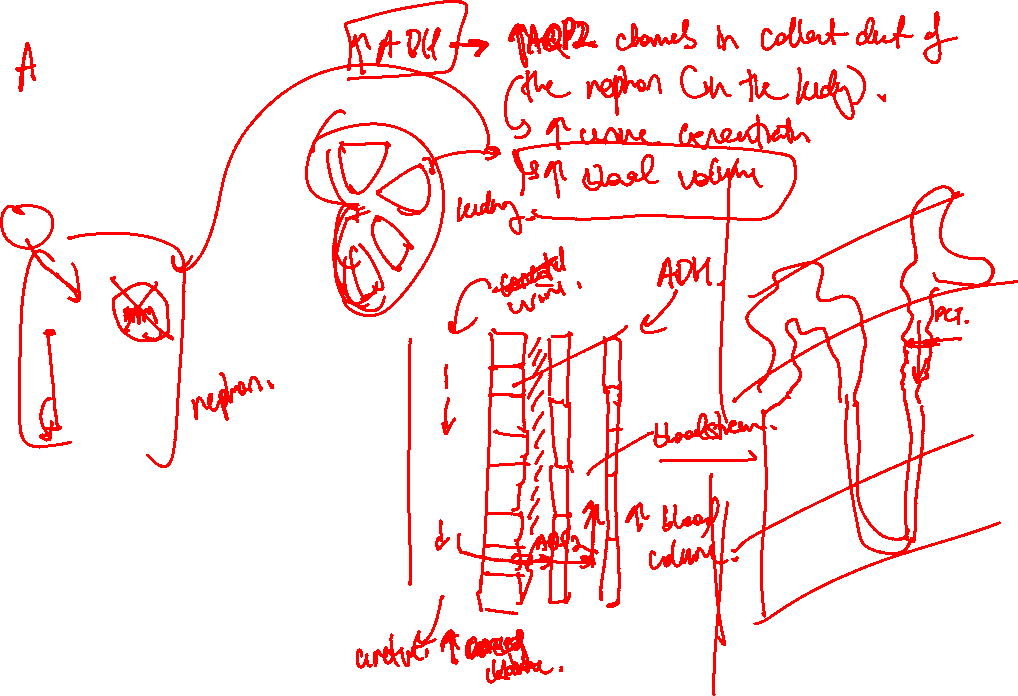 A
↑ ADH → ↑AQP2 channels in collect duct of
the nephron (in the kidney).
↳ ↑ urine concentration
↳ ↑ blood volume
kidney.
nephron.
urine.
ADH.
PCT.
bloodstream.
AQP2
↑ blood
volume.
ureter. ↑